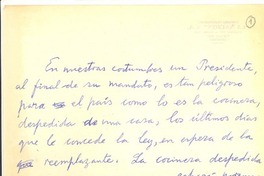 1
En nuestras costumbres un Presidente,
al final de su mandato, es tan peligroso
para el país como lo es la cocinera,
despedida de una casa, los últimos días
que le concede la ley, en espera de la
reemplazante. La cocinera despedida